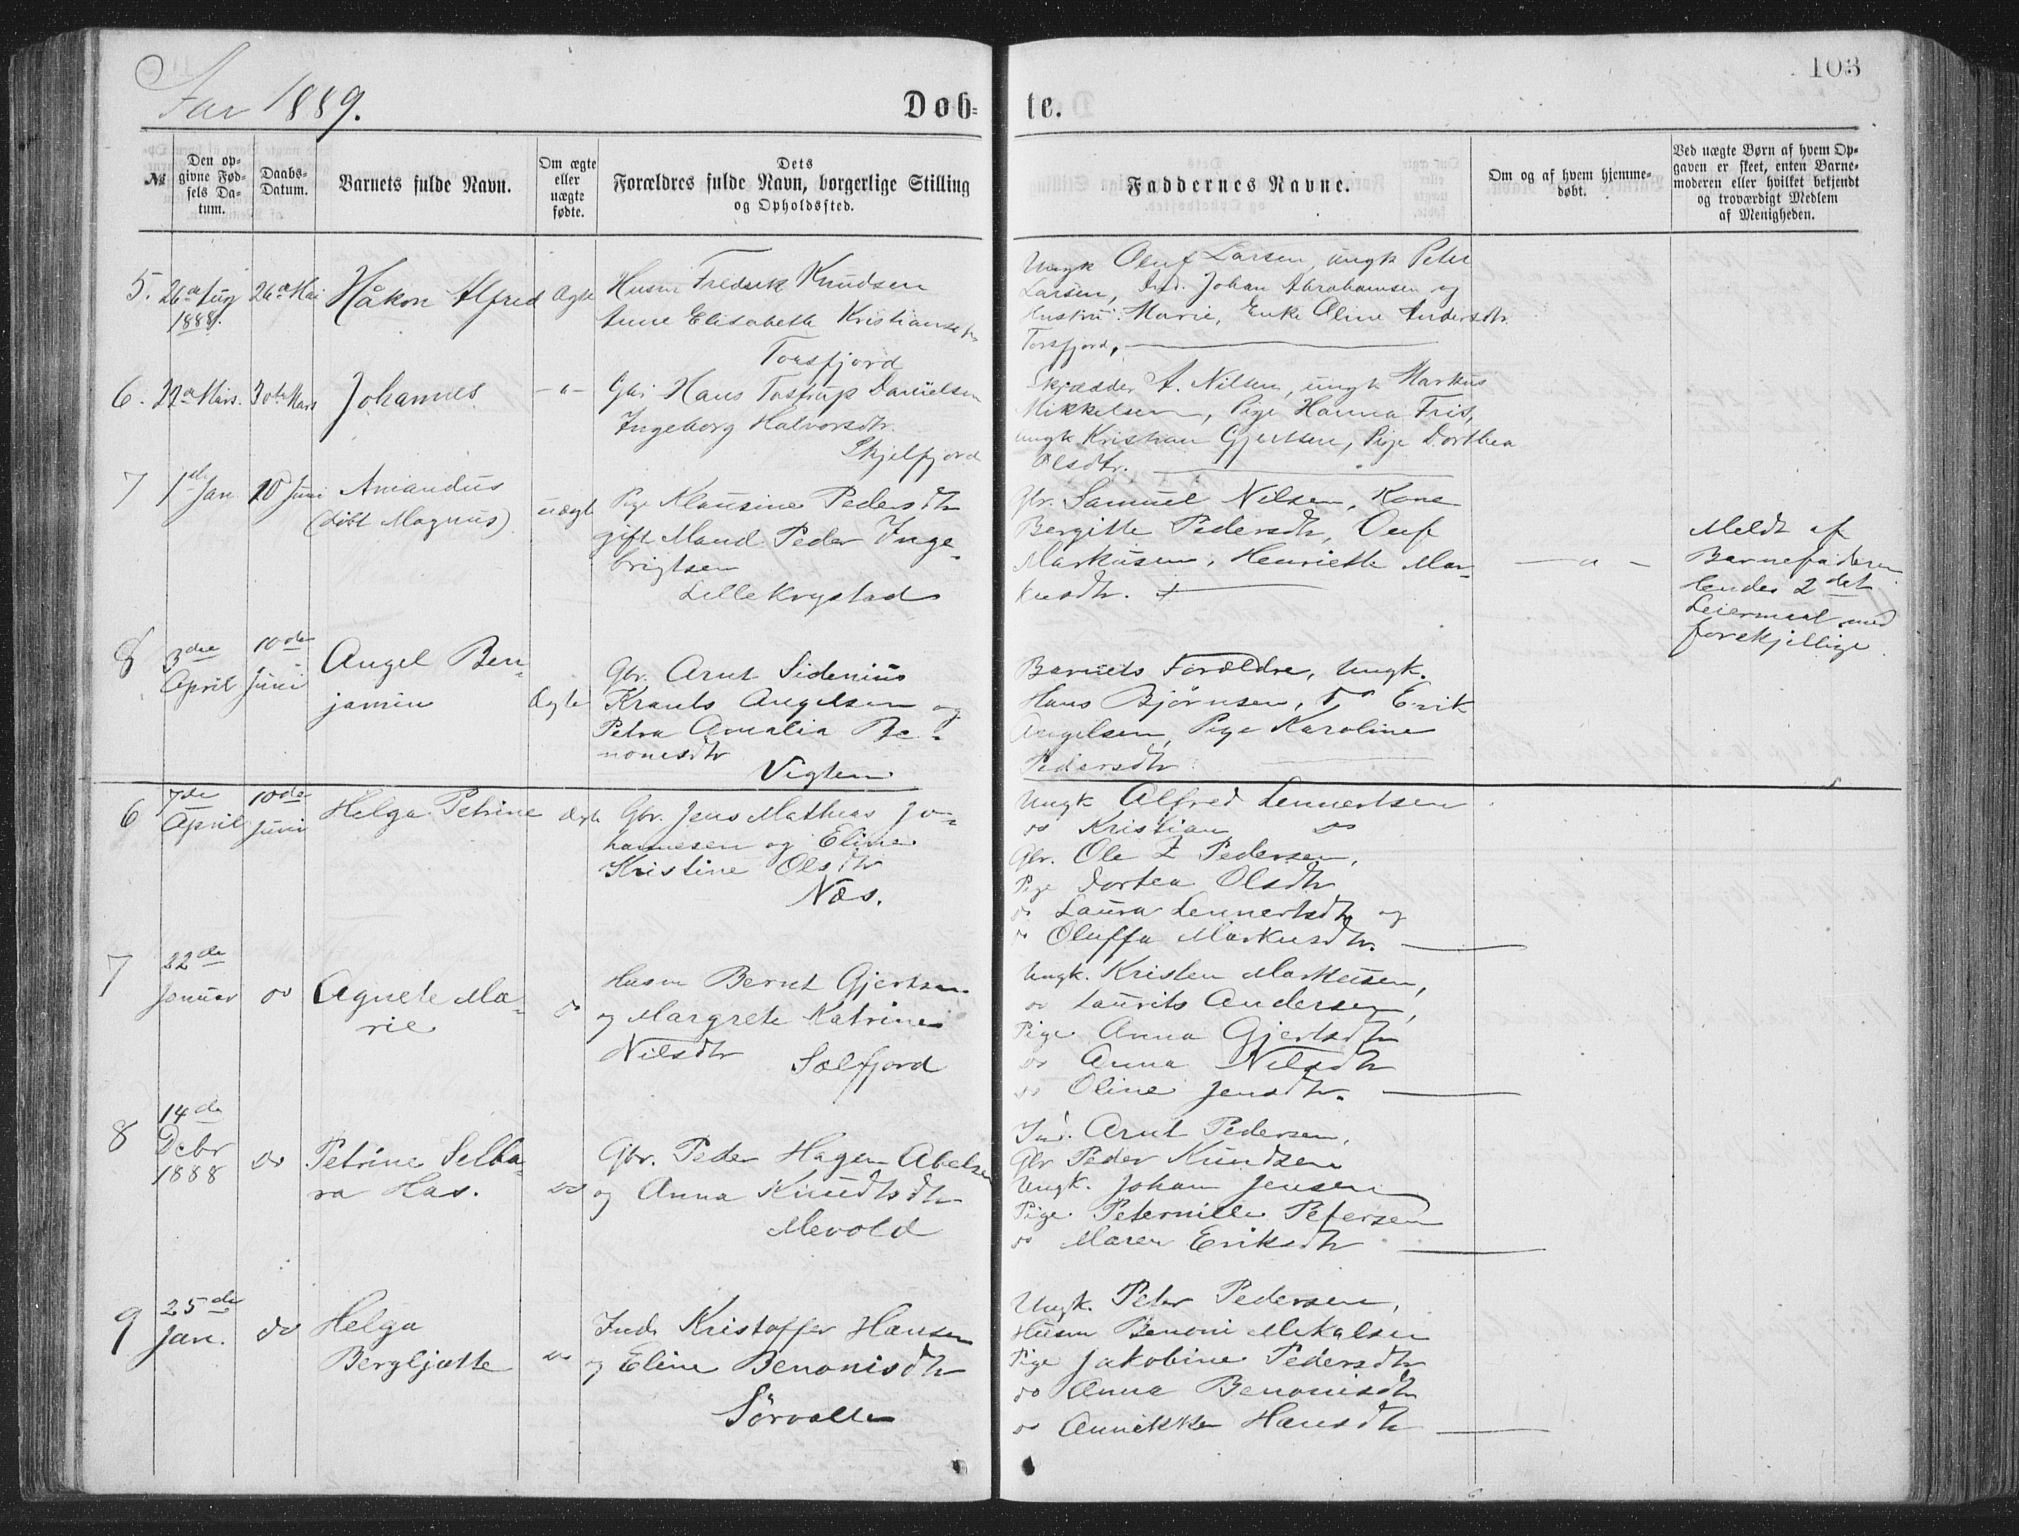 103
Aar 1889.
Døb-
te.
№
Den op-
givne Fød-
sels Da-
tum.
Daabs-
Datum.
Barnets fulde Navn.
Om ægte
eller
uægte
fødte.
Dets
Forældres fulde Navn, borgerlige Stilling
og Opholdssted.
Faddernes Navne.
Om og af hvem hjemme-
døbt.
Ved uægte Børn af hvem Op-
gaven er skeet, enten Barne-
moderen eller hvilket betjendt
og troværdigt Medlem
af Menigheden.
5.
26de Aug
1888.
26de Mai
Håkon Alfred
Ægte
Husm Fredrik Knudsen
Anne Elisabeth Kristiansdtr
Torsfjord
Ungk Oluf Larsen, ungk Peter
Larsen, Ind. Johan Abrahamsen og
Hustru Marie, Enke Oline Andersdtr
Torsfjord,
6.
Mars.
30te Mars
Johannes
-"-
Hans Tostrup Danielsen
Ingeborg Halvorsdtr.
Skjelfjord
A. Nilsen, ungk Markus
Mikkelsen, Pige Hanna Fris,
ungk Kristian Gjertsen, Pige Dorthea
Olsdtr.
7
1ste Jan.
10 Juni
Amandus
(døbt Magnus)
uægt
Pige Klausine Pedersdtr
gift Mand Peder Inge-
brigtsen
Lille Krystad
Gbr. Samuel Nilsen, Kone
Bergitte Pedersdtr, Oluf
Markusen, Henriette Mar-
kusdtr. +
- " -
Meldt af
Barnefaderen
Hendes 2det
Leiermaal med
forskjellige.
8
3die
April
10de
Juni
Angel Ben-
jamin
Ægte
Gbr. Arnt Sidenius
Krants Angelsen og
Petra Amalia Be-
nonisdtr
Vigten
Barnets Forældre, Ungk.
Hans Bjørnsen, Do Erik
Angelsen, Pige Karoline
Pedersdtr.
6
7de
April
10de
Juni
Helga Petrine
Ægte
Gbr. Jens Mathias Jo-
hannesen og Eline
Kristine Olsdtr
Næs.
Ungk Alfred Lennertsen
do Kristian do
Gbr. Ole Z Pedersen,
Pige Dortea Olsdtr
do Laura Lennertsdtr og
do Oluffa Markusdtr.
7
22de
Januar
do
Agnete Ma-
rie
do
Husm Bernt Gjertsen
og Margrete Katrine
Nilsdtr
Solfjord
Ungk. Kristen Markusen,
do Laurits Andersen,
Pige Anna Gjertsdtr
do Anna Nilsdtr
do Oline Jensdtr.
8
14de
Dcbr
1888
do
Petrine Selba-
ra Has.
do
Gbr. Peder Hagen Abelsen
og Anna Knudtsdtr
Mevold
Ind. Arnt Pedersen,
Gbr Peder Kundzen
Ungk. Johan Jensen
Pige Peternille Petersen
do Maren Eriksdtr
9
25de
Jan.
do
Helga
Bergljotte
do
Inds Kristoffer Hansen
og Eline Benonisdtr
Sörvolle
Ungk. Peter Pedersen,
Husm Benoni Mikalsen
Pige Jakobine Pedersdtr
do Anna Benonisdtr
do Annikken Hansdtr